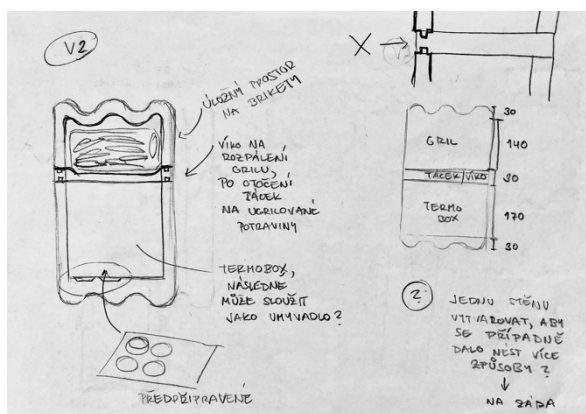 V2
ÚLOŽNÝ PROSTOR
NA BRIKETY
VÍKO NA
ROZPÁLENÍ
GRILU,
PO OTOČENÍ
TÁCEK
NA UGRILOVANÉ
POTRAVINY
TERMOBOX,
NÁSLEDNE
MŮŽE SLOUŽIT
JAKO UMYVADLO?
PŘEDPŘIPRAVENÉ
X
30
GRIL
140
TÁCEK/VÍKO
30
TERMO
BOX
170
30
?
JEDNU STĚNU
VYTVAROVAT, ABY
SE PŘÍPADNĚ
DALO NÉST VÍCE
ZPŮSOBY?
NA ZÁDA